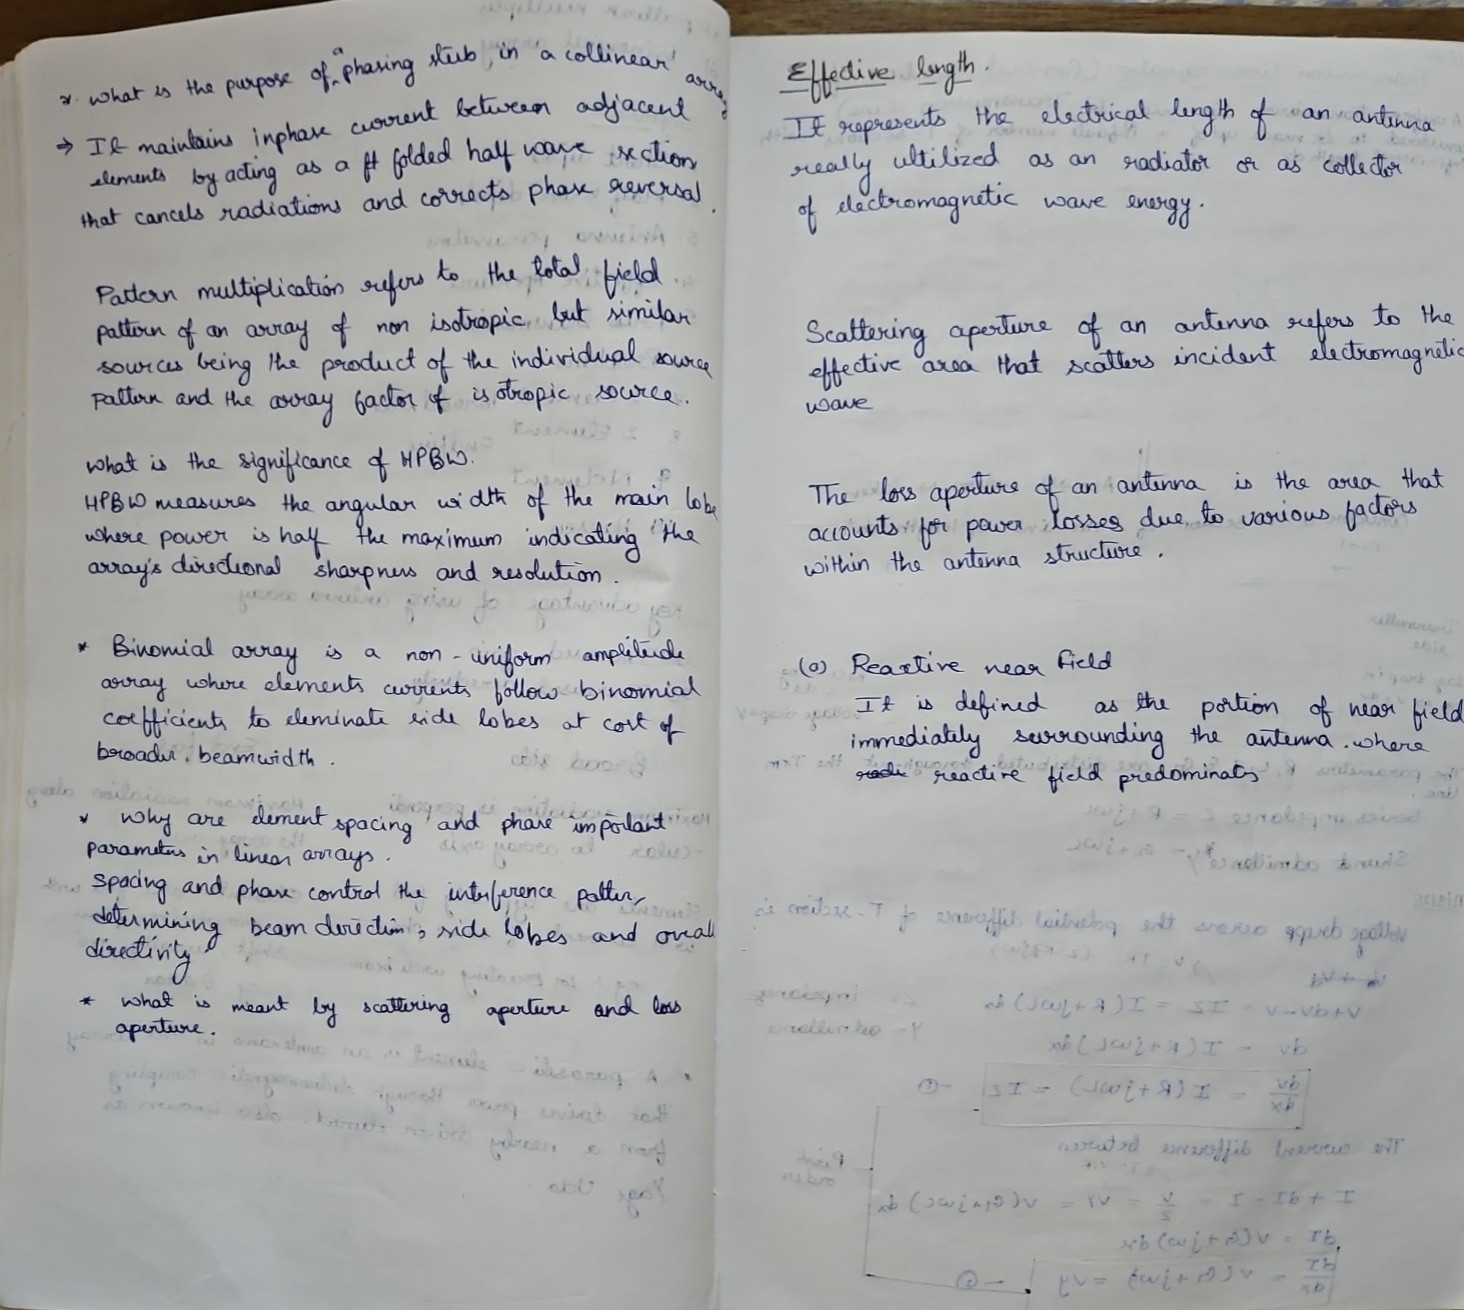 * what is the purpose of a phasing stub in a collinear array
→ It maintains inphase current between adjacent
elements by acting as a folded half wave section
that cancels radiations and corrects phase reversal.
Pattern multiplication refers to the total field
pattern of an array of non isotropic but similar
sources being the product of the individual source
pattern and the array factor of isotropic source.
what is the significance of HPBW.
HPBW measures the angular width of the main lobe
where power is half the maximum indicating the
array's directional sharpness and resolution.
* Binomial array is a non-uniform amplitude
array where elements currents follow binomial
coefficients to eleminate side lobes at cost of
broader beamwidth.
* why are element spacing and phase important
parameters in linear arrays.
spacing and phase control the interference patter,
determining beam direction, side lobes and overall
directivity
* what is meant by scattering aperture and loss
aperture.
Effective length.
It represents the electrical length of an antenna
really ultilized as an radiator or as collector
of electromagnetic wave energy.
Scattering aperture of an antenna refers to the
effective area that scatters incident electromagnetic
wave
The loss aperture of an antenna is the area that
accounts for power losses due to various factors
within the antenna structure.
(a) Reactive near field
It is defined as the portion of near field
immediately surrounding the antenna. where
reactive field predominates